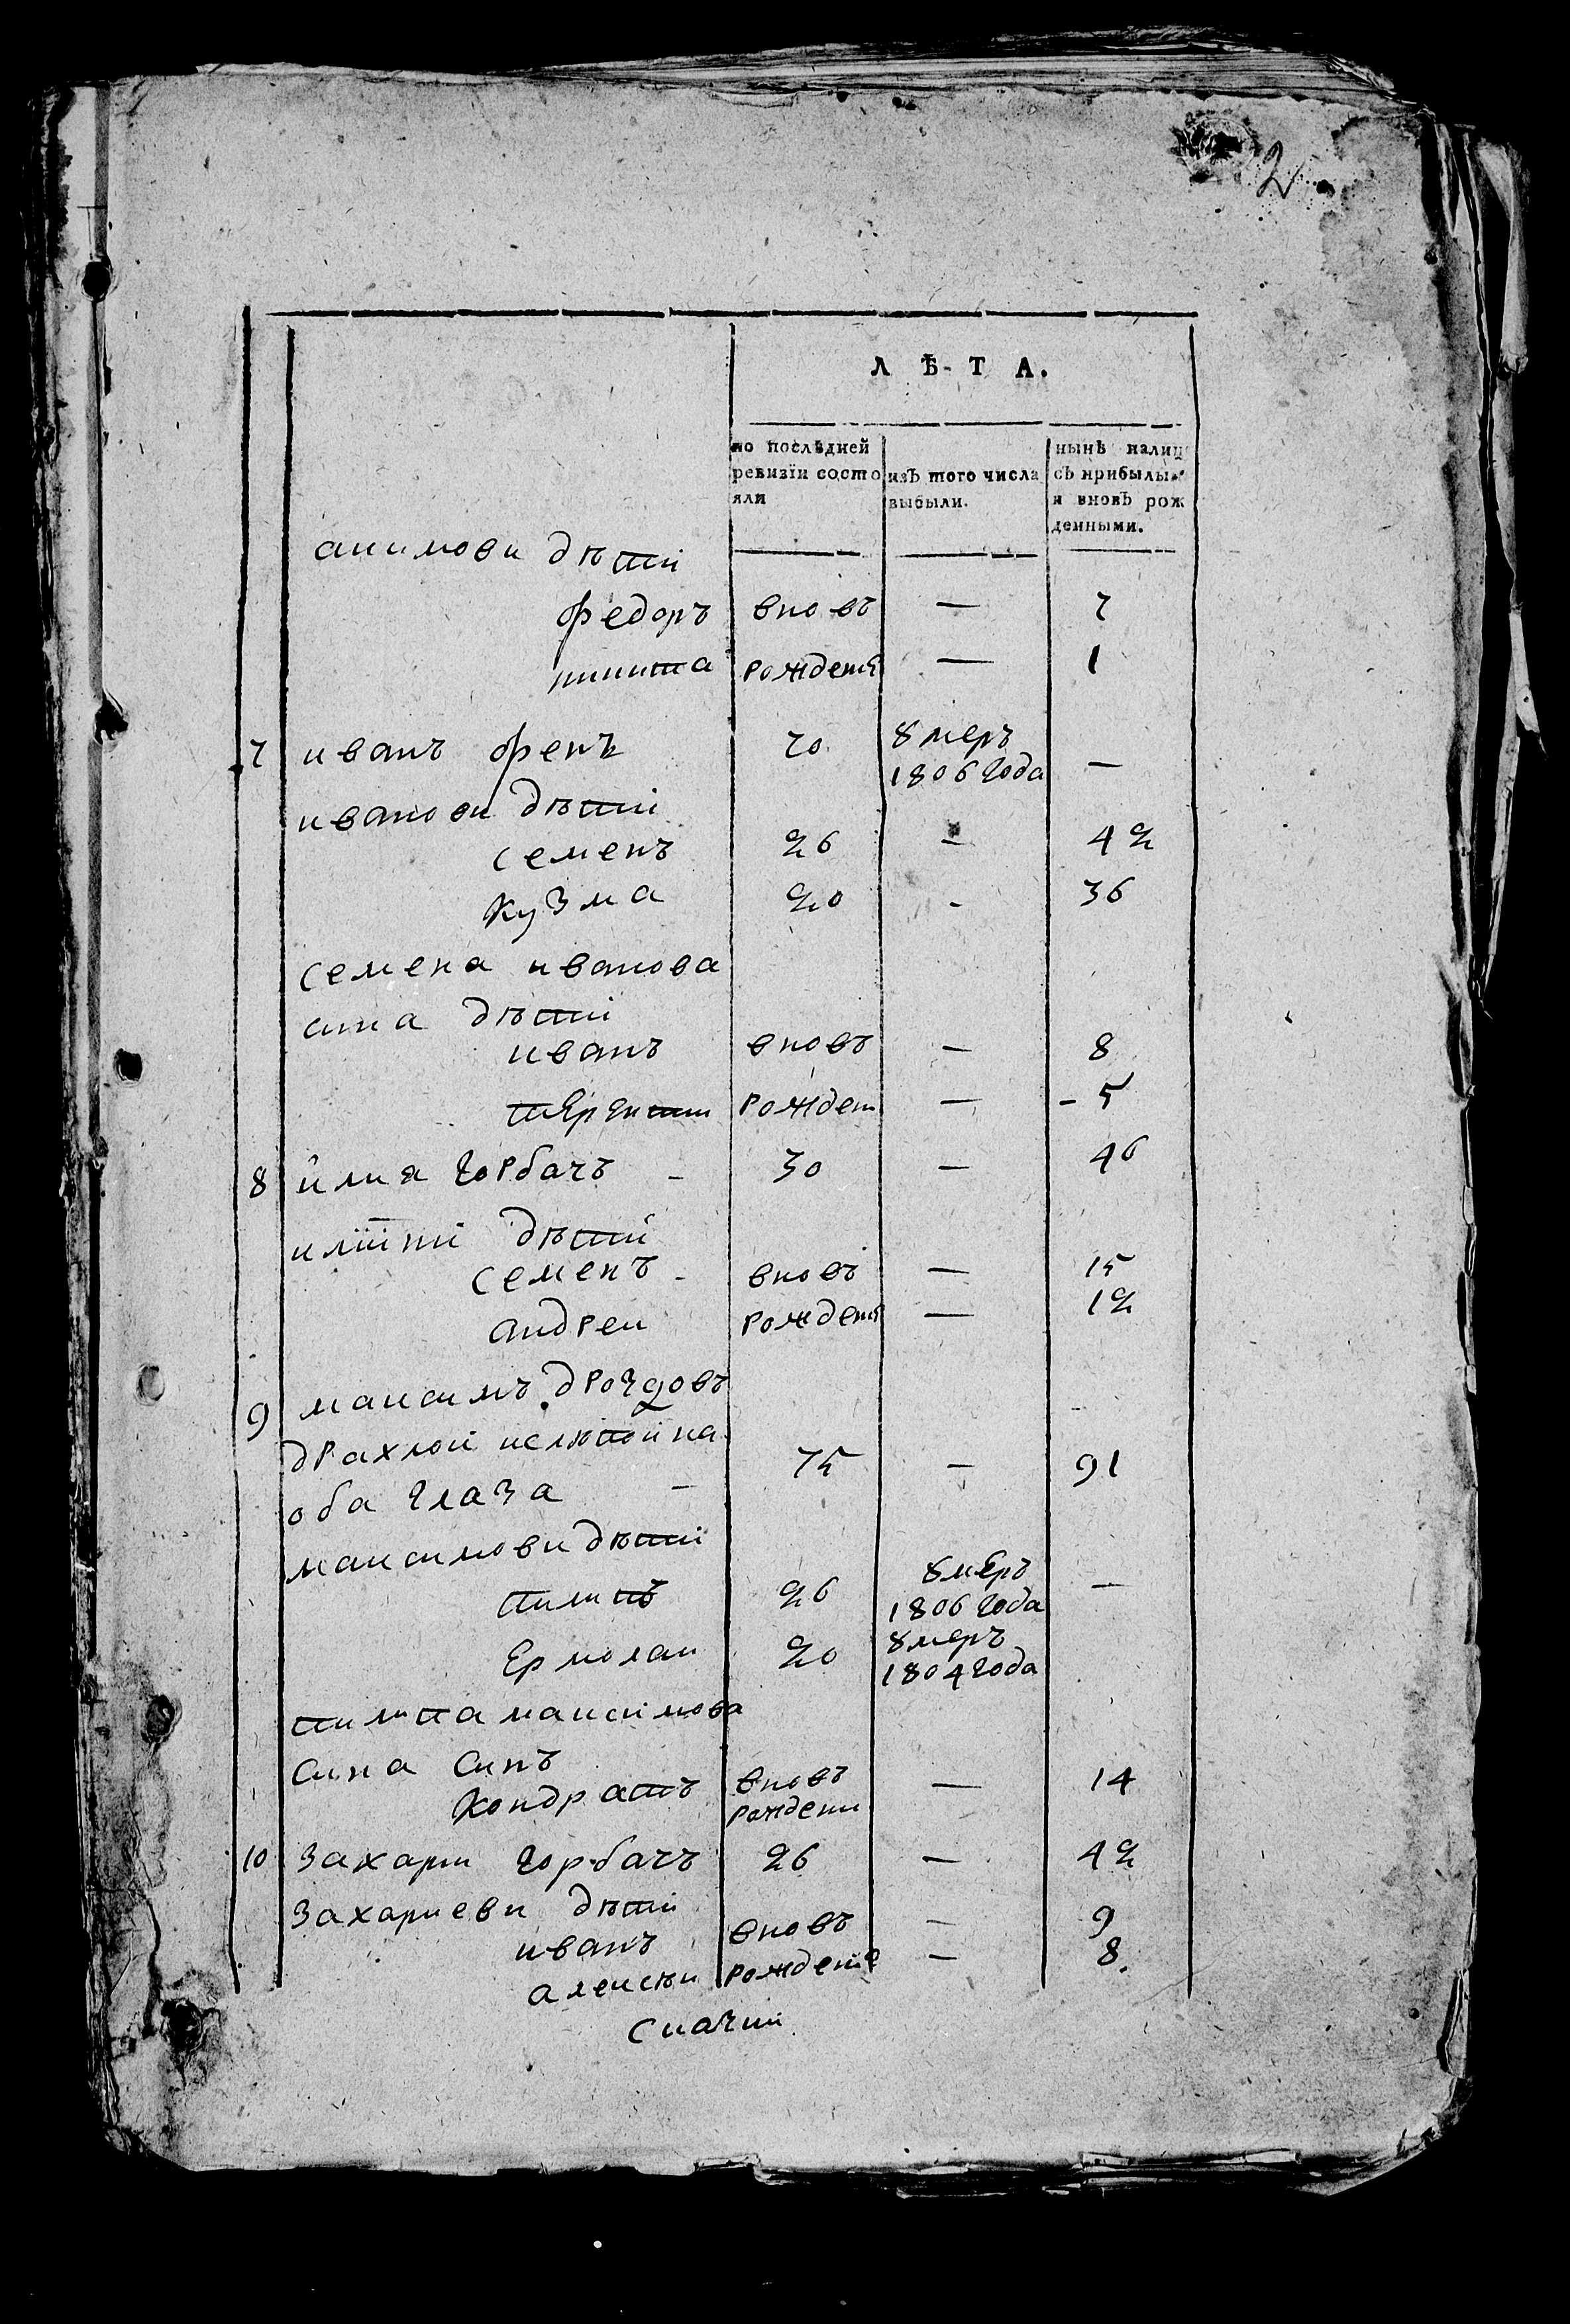 2
Л Ѣ Т А.
по послѣдней ревизіи состо яли
изъ того числа выбыли.
нынѣ налиц съ прибылы и вновь рож денными.
акимови дѣти
федоръ вновъ — 7
никита рождени — 1
7 иванъ френъ 70 умеръ 1806 года —
иванови дѣти
семенъ 26 — 42
кузма 20 - 36
семена иванова
сина дѣти
иванъ вновъ — 8
терентии рожден — - 5
8 илия горбачъ - 30 — 46
илїини дѣти
семенъ - вновъ — 15
андреи рождени — 12
9 максимъ дроздовъ
драхлой ислютой на
оба глаза - 75 — 91
максимови дѣти
пилипъ 26 умеръ 1806 года —
Ермолаи 20 умеръ 1804 года
пилипа максимова
сина синъ
кондратъ вновъ рождени — 14
10 захарии горбачъ 26 — 42
захариеви дѣти
иванъ вновъ — 9
алексѣи рождение — 8.